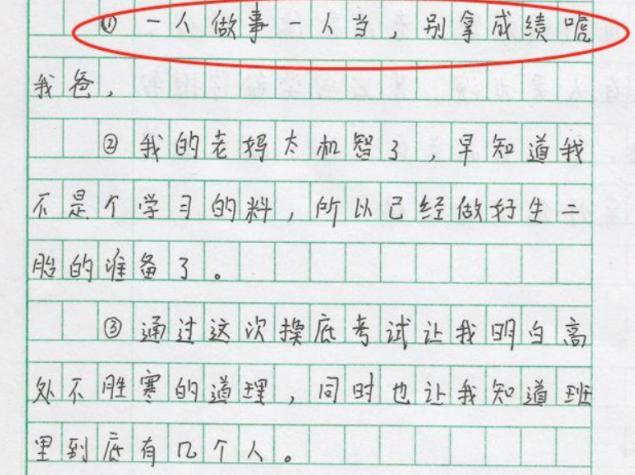 ① 一人做事一人当，别拿成绩唬
我爸，
② 我的老妈太机智了，早知道我
不是个学习的料，所以已经做好生二
胎的准备了。
③ 通过这次摸底考试让我明白高
处不胜寒的道理，同时也让我知道班
里到底有几个人。